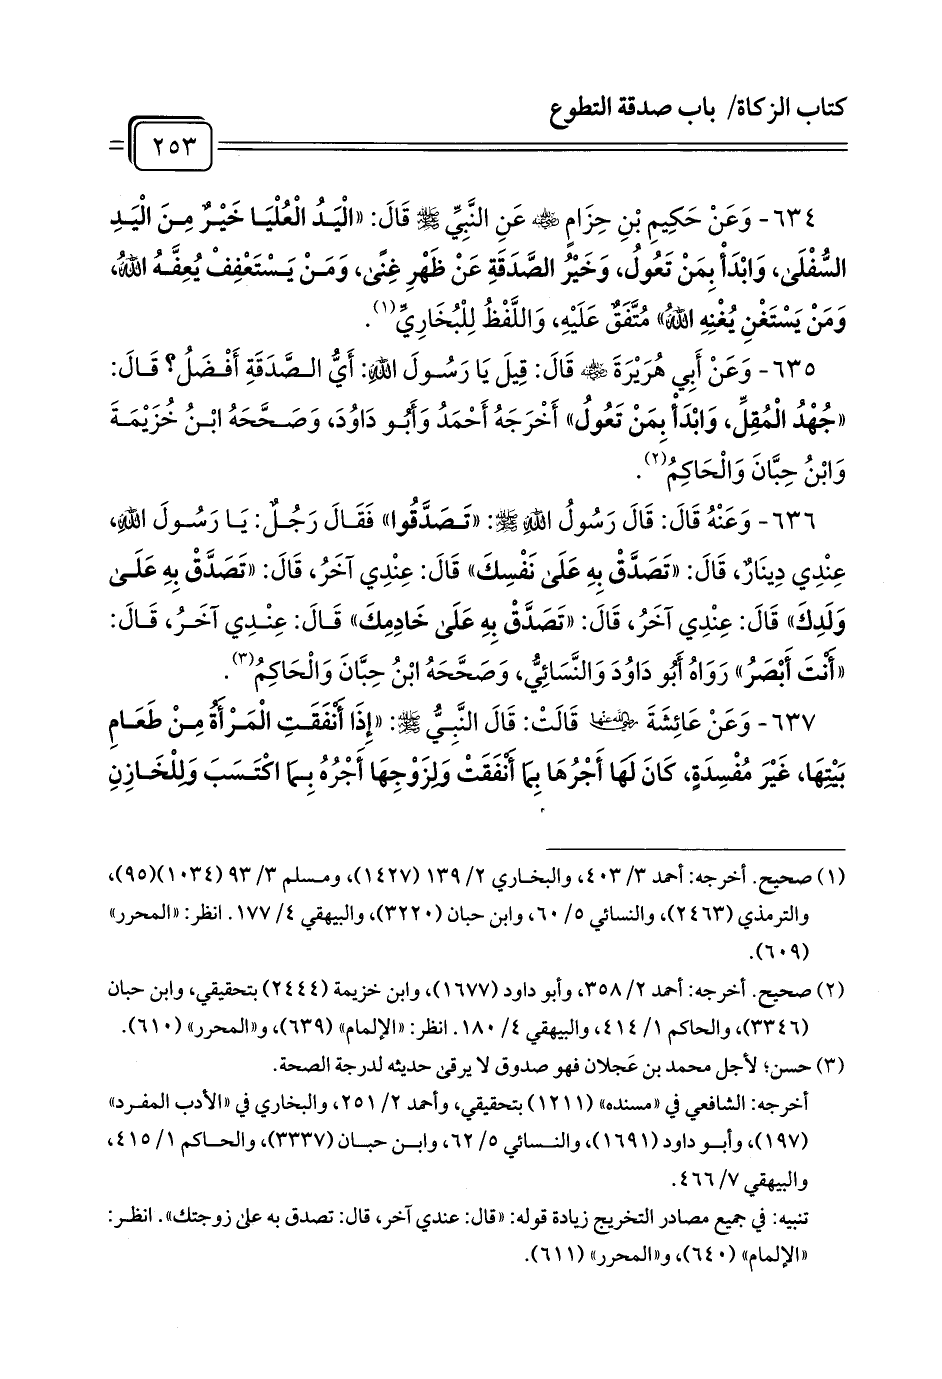 كتاب الزكاة/ باب صدقة التطوع
٢٥٣
٦٣٤- وَعَنْ حَكِيمِ بْنِ حِزَامٍ ﵁ عَنِ النَّبِيِّ ﷺ قَالَ: «الْيَدُ الْعُلْيَا خَيْرٌ مِنَ الْيَدِ
السُّفْلَى، وَابْدَأْ بِمَنْ تَعُولُ، وَخَيْرُ الصَّدَقَةِ عَنْ ظَهْرِ غِنًى، وَمَنْ يَسْتَعْفِفْ يُعِفَّهُ اللهُ،
وَمَنْ يَسْتَغْنِ يُغْنِهِ اللهُ» مُتَّفَقٌ عَلَيْهِ، وَاللَّفْظُ لِلْبُخَارِيِّ(١).
٦٣٥- وَعَنْ أَبِي هُرَيْرَةَ ﵁ قَالَ: قِيلَ يَا رَسُولَ اللهِ: أَيُّ الصَّدَقَةِ أَفْضَلُ؟ قَالَ:
«جُهْدُ الْمُقِلِّ، وَابْدَأْ بِمَنْ تَعُولُ» أَخْرَجَهُ أَحْمَدُ وَأَبُو دَاوُدَ، وَصَحَّحَهُ ابْنُ خُزَيْمَةَ
وَابْنُ حِبَّانَ وَالْحَاكِمُ(٢).
٦٣٦- وَعَنْهُ قَالَ: قَالَ رَسُولُ اللهِ ﷺ: «تَصَدَّقُوا» فَقَالَ رَجُلٌ: يَا رَسُولَ اللهِ،
عِنْدِي دِينَارٌ، قَالَ: «تَصَدَّقْ بِهِ عَلَى نَفْسِكَ» قَالَ: عِنْدِي آخَرُ، قَالَ: «تَصَدَّقْ بِهِ عَلَى
وَلَدِكَ» قَالَ: عِنْدِي آخَرُ، قَالَ: «تَصَدَّقْ بِهِ عَلَى خَادِمِكَ» قَالَ: عِنْدِي آخَرُ، قَالَ:
«أَنْتَ أَبْصَرُ» رَوَاهُ أَبُو دَاوُدَ وَالنَّسَائِيُّ، وَصَحَّحَهُ ابْنُ حِبَّانَ وَالْحَاكِمُ(٣).
٦٣٧- وَعَنْ عَائِشَةَ ﵂ قَالَتْ: قَالَ النَّبِيُّ ﷺ: «إِذَا أَنْفَقَتِ الْمَرْأَةُ مِنْ طَعَامِ
بَيْتِهَا، غَيْرَ مُفْسِدَةٍ، كَانَ لَهَا أَجْرُهَا بِمَا أَنْفَقَتْ وَلِزَوْجِهَا أَجْرُهُ بِمَا اكْتَسَبَ وَلِلْخَازِنِ
(١) صحيح. أخرجه: أحمد ٣/ ٤٠٣، والبخاري ٢/ ١٣٩ (١٤٢٧)، ومسلم ٣/ ٩٣ (١٠٣٤)(٩٥)،
والترمذي (٢٤٦٣)، والنسائي ٥/ ٦٠، وابن حبان (٣٢٢٠)، والبيهقي ٤/ ١٧٧. انظر: «المحرر»
(٦٠٩).
(٢) صحيح. أخرجه: أحمد ٢/ ٣٥٨، وأبو داود (١٦٧٧)، وابن خزيمة (٢٤٤٤) بتحقيقي، وابن حبان
(٣٣٤٦)، والحاكم ١/ ٤١٤، والبيهقي ٤/ ١٨٠. انظر: «الإلمام» (٦٣٩)، و«المحرر» (٦١٠).
(٣) حسن؛ لأجل محمد بن عَجلان فهو صدوق لا يرقى حديثه لدرجة الصحة.
أخرجه: الشافعي في «مسنده» (١٢١١) بتحقيقي، وأحمد ٢/ ٢٥١، والبخاري في «الأدب المفرد»
(١٩٧)، وأبو داود (١٦٩١)، والنسائي ٥/ ٦٢، وابن حبان (٣٣٣٧)، والحاكم ١/ ٤١٥،
والبيهقي ٧/ ٤٦٦.
تنبيه: في جميع مصادر التخريج زيادة قوله: «قال: عندي آخر، قال: تصدق به على زوجتك». انظر:
«الإلمام» (٦٤٠)، و«المحرر» (٦١١).